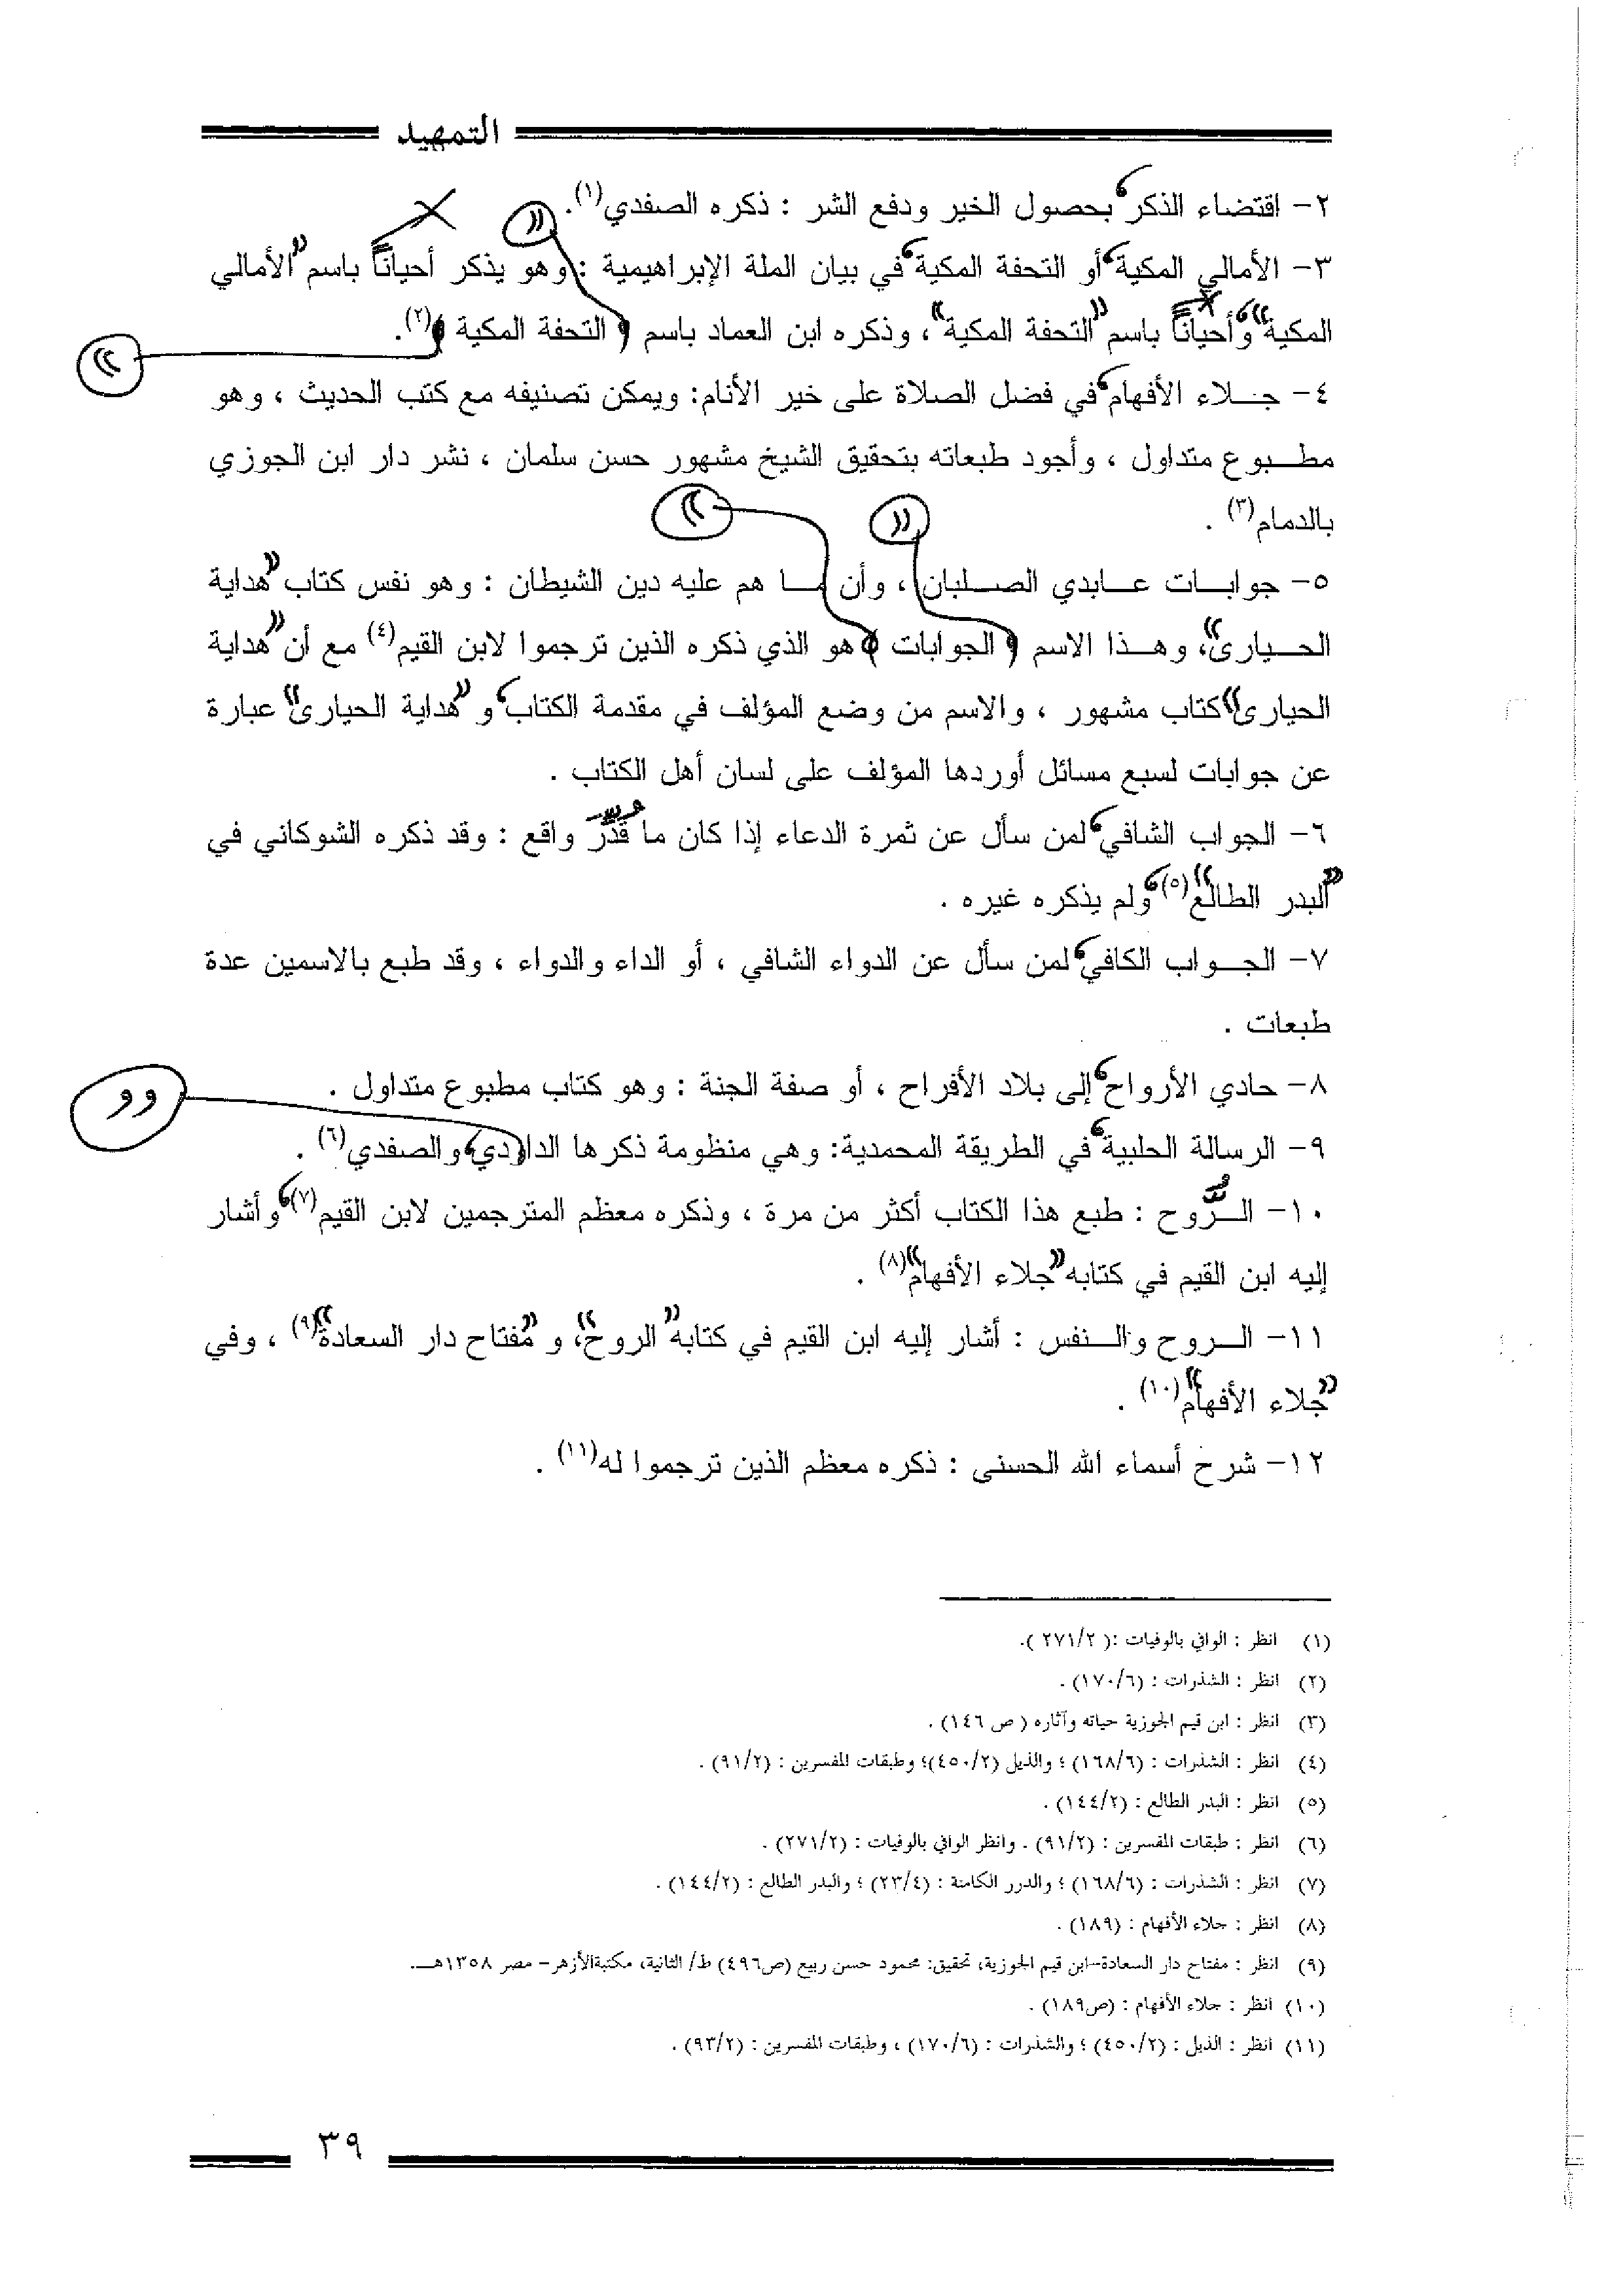 التمهيد
٢- اقتضاء الذكر بحصول الخير ودفع الشر : ذكره الصفدي(١).
٣- الأمالي المكية، أو التحفة المكية، في بيان الملة الإبراهيمية : وهو يذكر أحياناً باسم "الأمالي
المكية"، وأحياناً باسم "التحفة المكية"، وذكره ابن العماد باسم ( التحفة المكية )(٢).
٤- جـــلاء الأفهام، في فضل الصلاة على خير الأنام: ويمكن تصنيفه مع كتب الحديث ، وهو
مطـــبوع متداول ، وأجود طبعاته بتحقيق الشيخ مشهور حسن سلمان ، نشر دار ابن الجوزي
بالدمام(٣) .
٥- جوابـــات عـــابدي الصـــلبان ، وأن مـــا هم عليه دين الشيطان : وهو نفس كتاب "هداية
الحـــيارى"، وهـــذا الاسم ( الجوابات ) هو الذي ذكره الذين ترجموا لابن القيم(٤) مع أن "هداية
الحيارى" كتاب مشهور ، والاسم من وضع المؤلف في مقدمة الكتاب، و "هداية الحيارى" عبارة
عن جوابات لسبع مسائل أوردها المؤلف على لسان أهل الكتاب .
٦- الجواب الشافي، لمن سأل عن ثمرة الدعاء إذا كان ما قُدِّر واقع : وقد ذكره الشوكاني في
"البدر الطالع"(٥)، ولم يذكره غيره .
٧- الجـــواب الكافي، لمن سأل عن الدواء الشافي ، أو الداء والدواء ، وقد طبع بالاسمين عدة
طبعات .
٨- حادي الأرواح، إلى بلاد الأفراح ، أو صفة الجنة : وهو كتاب مطبوع متداول .
٩- الرسالة الحلبية، في الطريقة المحمدية: وهي منظومة ذكرها الداودي، والصفدي(٦) .
١٠- الـــرُّوح : طبع هذا الكتاب أكثر من مرة ، وذكره معظم المترجمين لابن القيم(٧)، وأشار
إليه ابن القيم في كتابه "جلاء الأفهام"(٨) .
١١- الـــروح والـــنفس : أشار إليه ابن القيم في كتابه "الروح"، و "مفتاح دار السعادة"(٩) ، وفي
"جلاء الأفهام"(١٠) .
١٢- شرح أسماء الله الحسنى : ذكره معظم الذين ترجموا له(١١) .
(١) انظر : الوافي بالوفيات :( ٢٧١/٢ ).
(٢) انظر : الشذرات : (١٧٠/٦) .
(٣) انظر : ابن قيم الجوزية حياته وآثاره ( ص ١٤٦) .
(٤) انظر : الشذرات : (١٦٨/٦) ؛ والذيل (٤٥٠/٢)؛ وطبقات المفسرين : (٩١/٢) .
(٥) انظر : البدر الطالع : (١٤٤/٢) .
(٦) انظر : طبقات المفسرين : (٩١/٢) . وانظر الوافي بالوفيات : (٢٧١/٢) .
(٧) انظر : الشذرات : (١٦٨/٦) ؛ والدرر الكامنة : (٢٣/٤) ؛ والبدر الطالع : (١٤٤/٢) .
(٨) انظر : جلاء الأفهام : (١٨٩) .
(٩) انظر : مفتاح دار السعادة–ابن قيم الجوزية، تحقيق: محمود حسن ربيع (ص٤٩٦) ط/ الثانية، مكتبةالأزهر– مصر ١٣٥٨هـــ.
(١٠) انظر : جلاء الأفهام : (ص١٨٩) .
(١١) انظر : الذيل : (٤٥٠/٢) ؛ والشذرات : (١٧٠/٦) ، وطبقات المفسرين : (٩٣/٢) .
٣٩